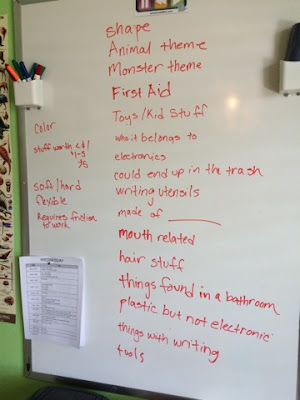 shape
Animal theme
Monster theme
First Aid
Toys/Kid Stuff
who it belongs to
electronics
could end up in the trash
writing utensils
made of ________
mouth related
hair stuff
things found in a bathroom
plastic but not electronic
things with writing
tools
Color
stuff worth
soft/hard
flexible
Requires friction
to work